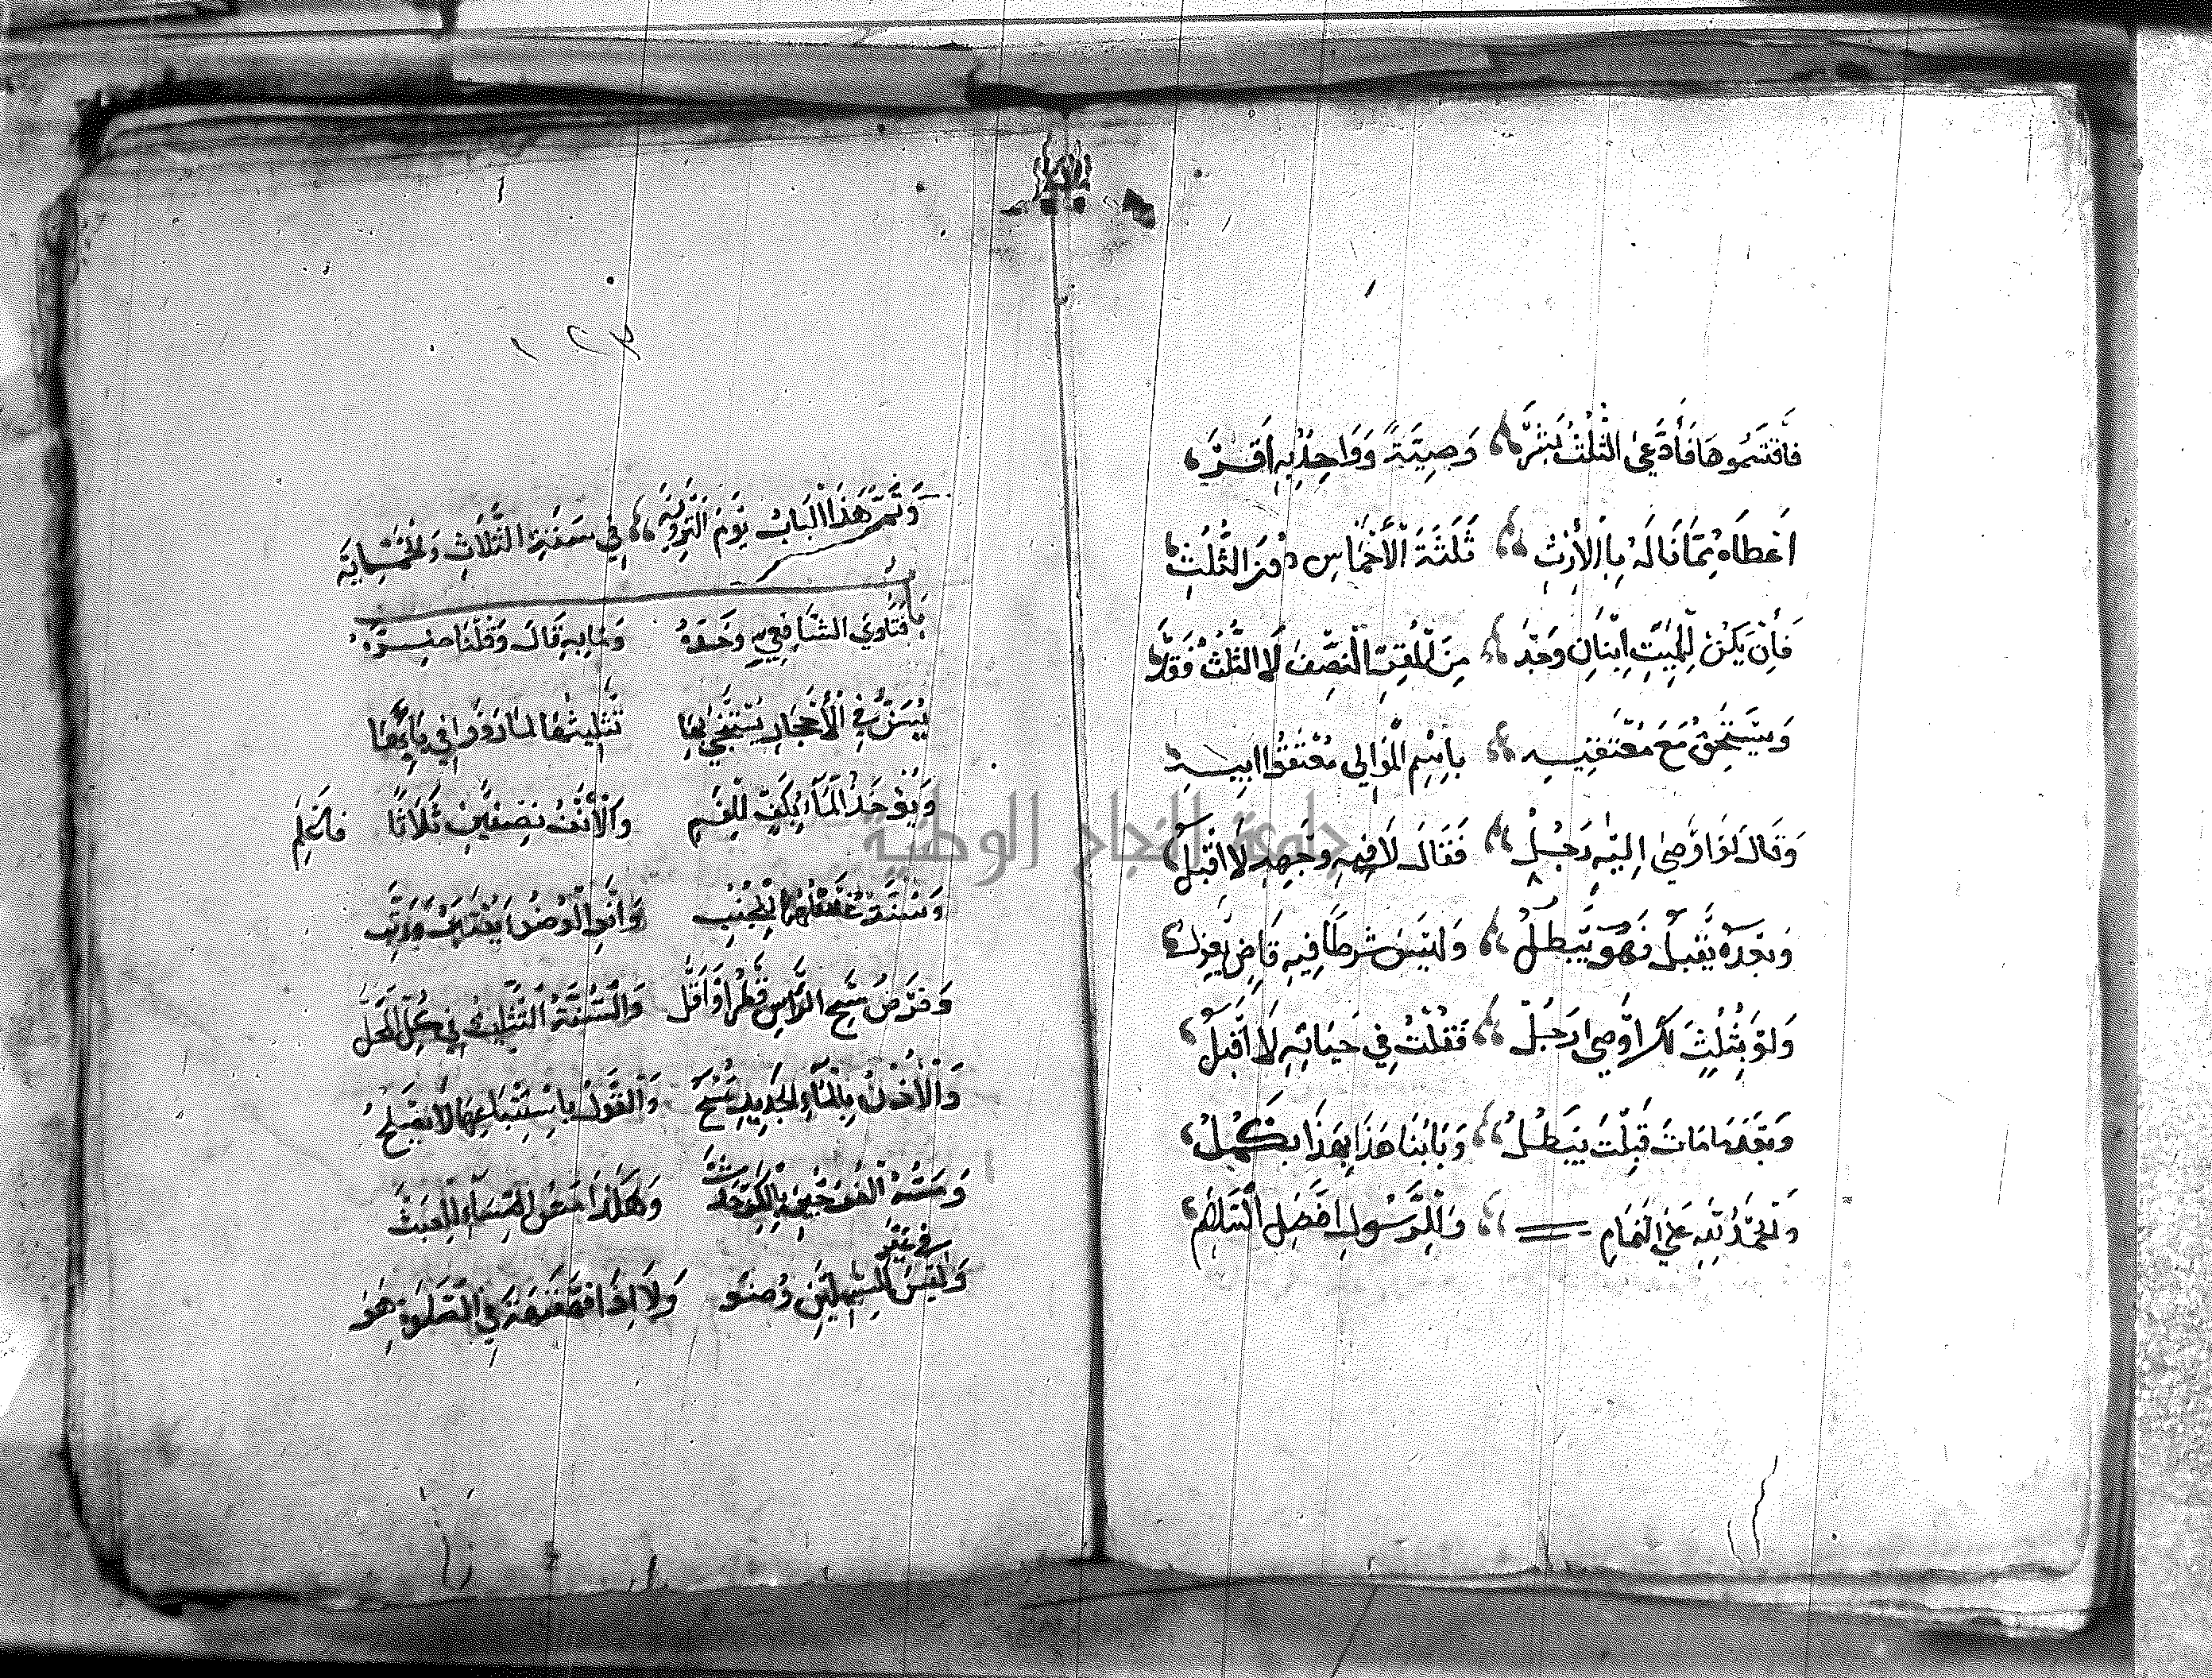 فَاقْتَسَمُوهَا فَادَّعَى الثُّلْثَ بَشَرْ وَصِيَّةً وَوَاحِدٌ بِهِ أَقَرّْ
أَعْطَاهُ مِمَّا نَالَهُ بِالْأِرْثِ ثَلَثَةَ الْأَخْمَاسِ دُونَ الثُّلْثِ
فَإِنْ يَكُنْ لِلْمَيِّتِ ابْنَانِ وَجَدْ مِنَ الْمُقِرِّ النِّصْفَ لَا الثُّلْثَ فَقَدْ
وَيَسْتَحِقُّ مَعَ مُعْتَقِيهِ بِاسْمِ الْمَوَالِي مُعْتَقُوا أَبِيهِ
وَقَالَ لَوْ أَوْصَى إِلَيْهِ رَجُلُ فَقَالَ لَا فِي وَجْهِهِ لَا أَقْبَلُ
وَبَعْدَهُ يَقْبَلُ فَهُوَ يَبْطُلُ وَلَيْسَ شَرْطًا فِيهِ قَاضٍ يَعْزِلُ
وَلَوْ بِثُلْثٍ لَكَ أَوْصَى رَجُلُ فَقُلْتَ فِي حَيَاتِهِ لَا أَقْبَلُ
وَبَعْدَ مَا مَاتَ قَبِلْتَ يَبْطُلُ وَبَابُنَا هَذَا بِهَذَا يَكْمُلُ
وَالْحَمْدُ لِلَّهِ عَلَى التَّمَامِ وَلِلرَّسُولِ أَفْضَلُ السَّلَامِ
١٢٤
وَتَمَّ هَذَا الْبَابُ يَوْمَ التَّرْوِيَهْ فِي سَنَةِ الثَّلَاثِ وَالْخَمْسِمِايَهْ
بَابُ
فَتَاوِي الشَّافِعِيِّ وَحْدَهُ وَمَا بِهِ قَالَ وَقُلْنَا ضِدَّهُ
يُسَنُّ فِي الْأَحْجَارِ يَسْتَنْجِي بِهَا تَثْلِيثُهَا لِمَا رَوَوْا فِي بَابِهَا
وَيُؤْخَذُ الْمَاءُ بِكَفٍّ لِلْفَمِ وَالْأَنْفِ نِصْفَيْنِ ثَلَاثًا فَاعْلَمِ
وَسُنَّةٌ غَسْلُهُمَا لِلْجُنُبِ وَانْوِ الْوُضُوءَ يَقْتَضِيكَ وَرَتِّبِ
وَفَرْضُ مَسْحِ الرَّاسِ قَطْرٌ أَوْ أَقَلّ وَالسُّنَّةُ التَّثْلِيثُ فِي كُلِّ الْمَحَلّ
وَالْأُذْنُ بِالْمَاءِ الْجَدِيدِ تُمْسَحُ وَالْقَوْلُ بِاسْتِتْبَاعِهَا لَا يَصْلُحُ
وَمَسُّهُ الْفَرْجَيْنِ بِالْكَفِّ حَدَثْ وَهَكَذَا مَسُّ النِّسَاءِ لِلْعَبَثْ
وَلَيْسَ فِي غَيْرِ السَّبِيلَيْنِ وُضُو وَلَا إِذَا قَهْقَهَةٌ فِي الصَّلَوةِ هُو